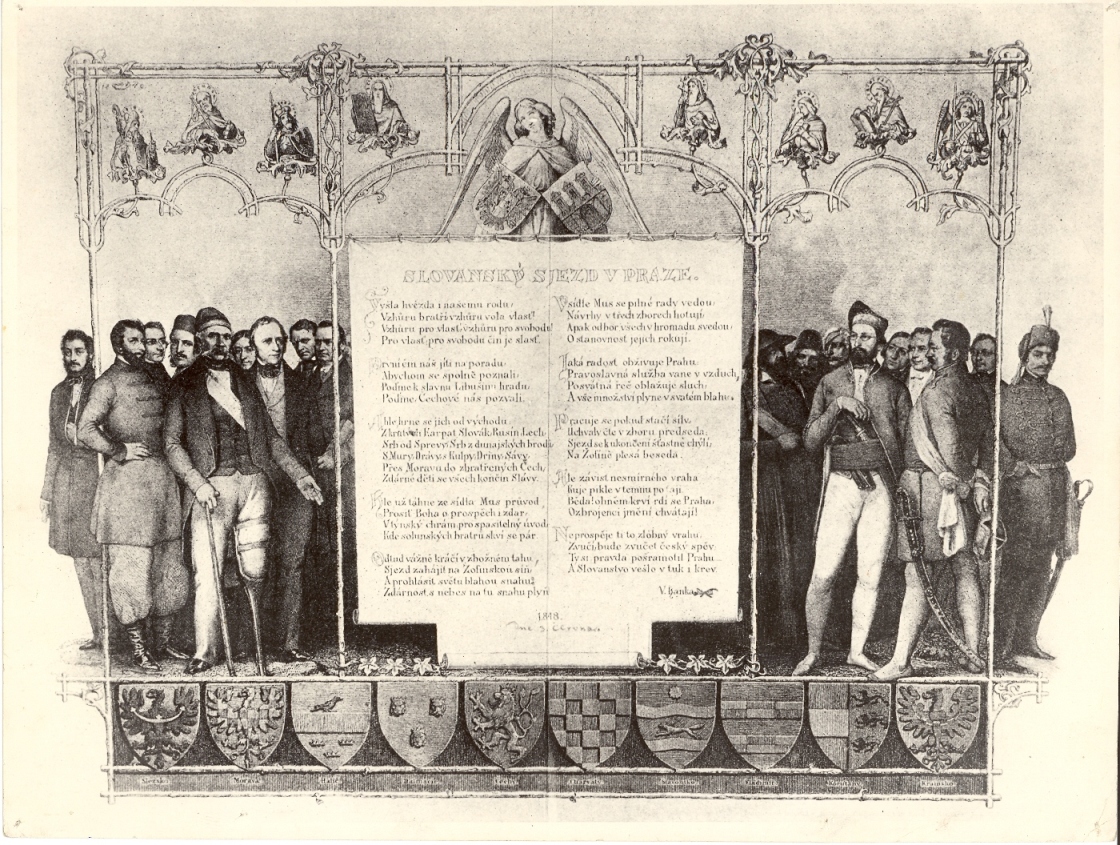 SLOVANSKÝ SJEZD V PRAZE.
Vyšla hvězda i našemu rodu,
Vzhůru bratří vzhůru volá vlast!
Vzhůru pro vlast, vzhůru pro svobodu!
Pro vlast, pro svobodu čin je slast.
První čin náš jíti na poradu,
Abychom se spolně poznali,
Poďme k slavnu Libušinu hradu,
Poďme, Čechové nás pozvali.
Ahle hrne se jich od východu,
Karpat Slovák, Rusín, Lech,
Srb od Sprevy, Srb z dunajských brodů
S Mury, Drávy, s Kulpy, Driny, Sávy,
Přes Moravu do zbratřených Čech,
Zdárné děti se všech končin Slávy.
Hle už táhne ze sídla Mus průvod,
Prosit Boha o prospěch i zdar,
V týnský chrám, pro spasitelný úvod,
Kde solunských bratrů skví se pár.
Odtud vážně kráčí v zbožném tahu,
Sjezd zahájit na Žofínskou síň,
A prohlásit světu blahou snahu,
Zdárnost s nebes na tu snahu plyň
V sídle Mus se pilné rady vedou,
Návrhy v třech zborech hotují,
A pak odbor všech v hromadu svedou,
O stanovnost jejich rokují.
Jaká radost obživuje Prahu,
Pravoslavná služba vane v vzduch,
Posvátná řeč oblažuje sluch,
A vše množství plyne v svatém blahu.
Pracuje se pokud stačí síly,
Uchvaly čte v zboru předseda,
Sjezd se k ukončení šťastně chýlí,
Na Žofíně plesá beseda.
Ale závist nesmírného vraha
Kuje pikle v temnu potají
Běda! ohněm krví rdí se Praha,
Ozbrojenci jmění chvátají!
Neprospěje ti to, zlobný vrahu,
Zvučí, bude zvučet český zpěv,
Tysi pravda pošramotil Prahu,
A Slovanstvo vešlo v tuk i krev.
V. Hanka
1848.